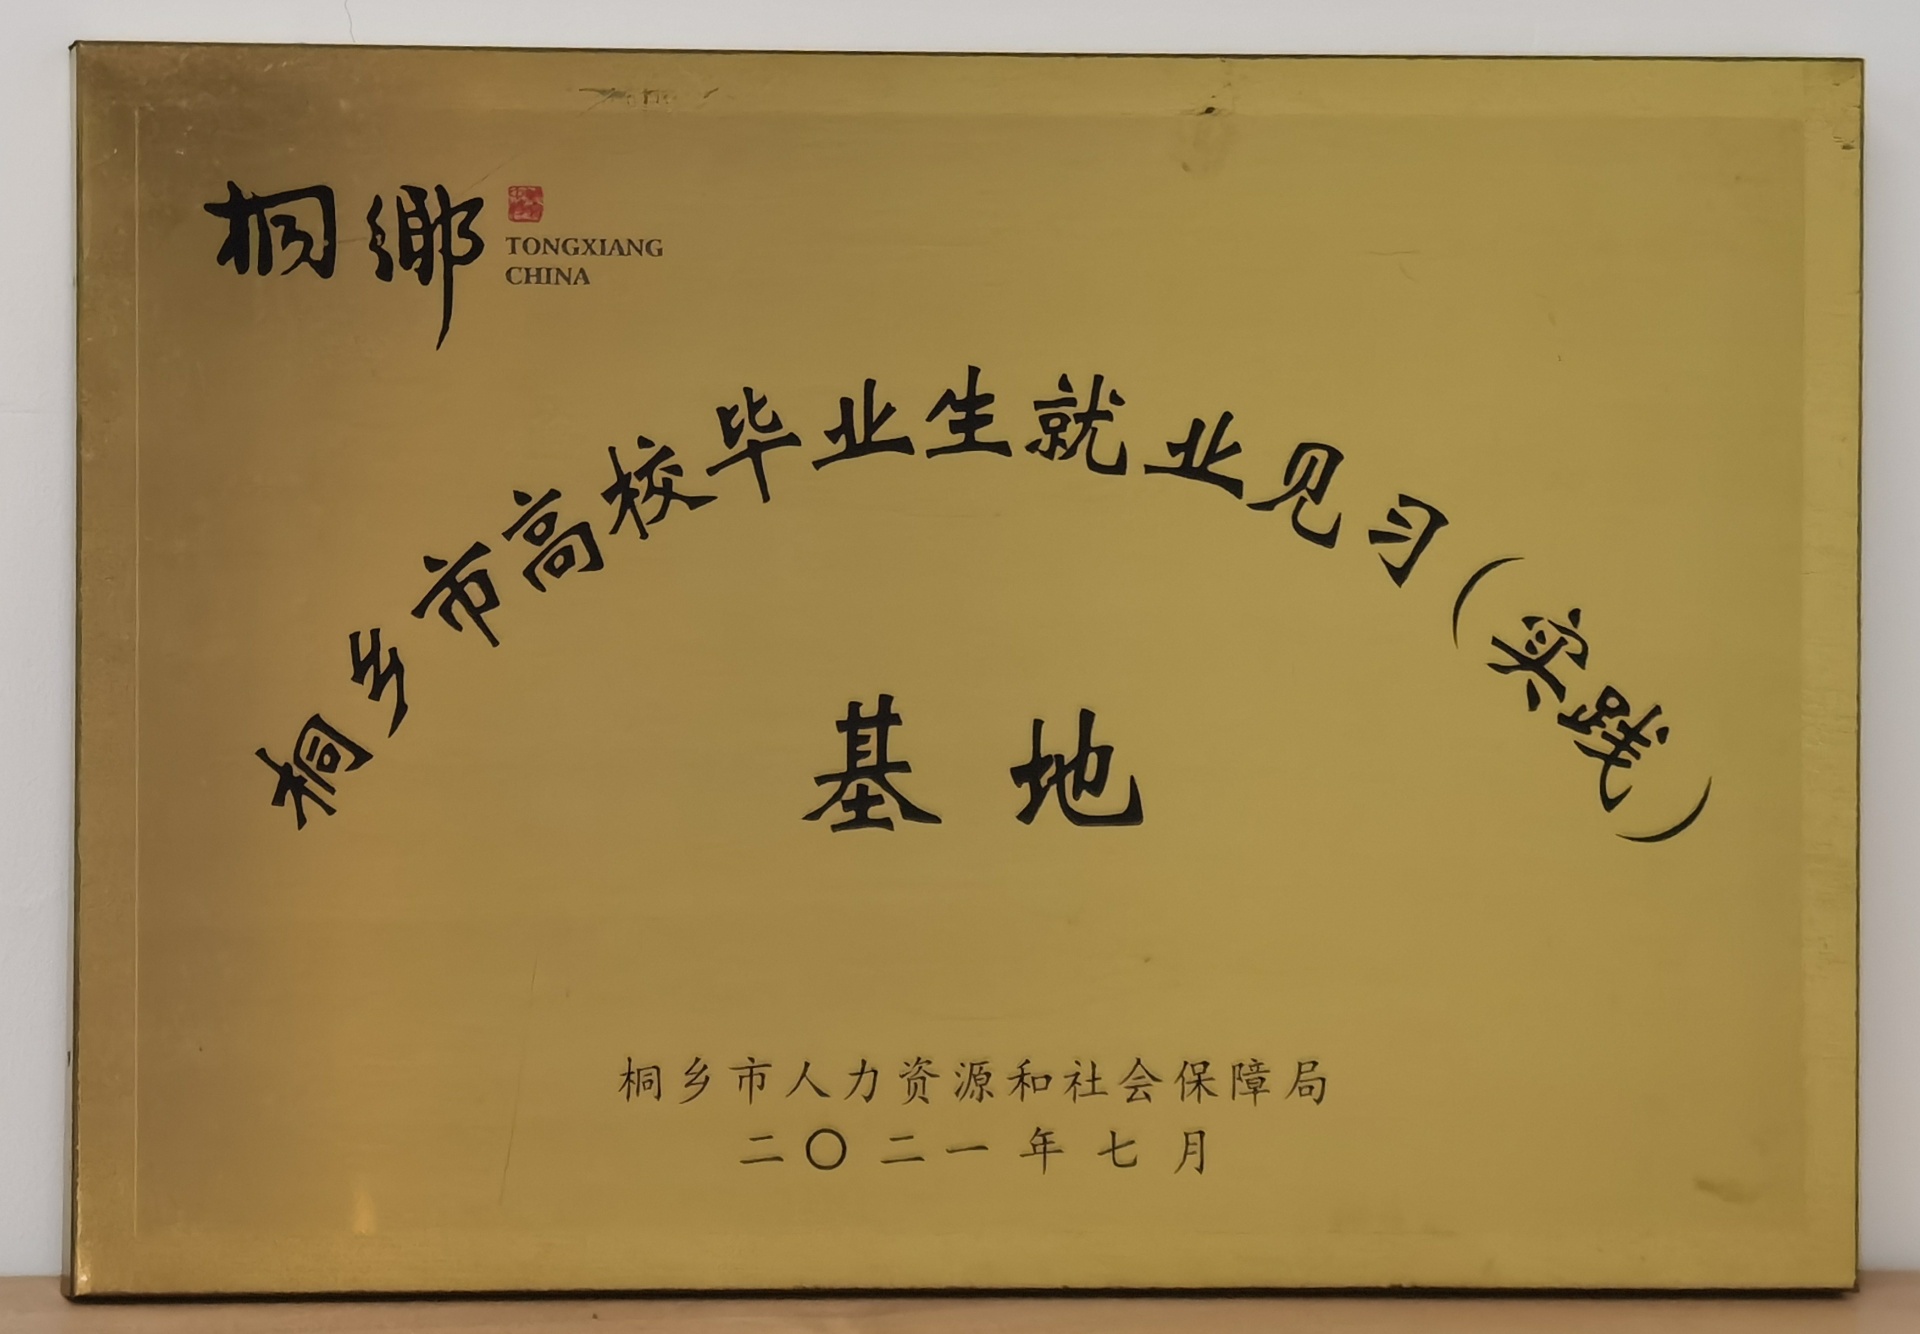 桐鄉
TONGXIANG
CHINA
桐乡市高校毕业生就业见习(实践)
基地
桐乡市人力资源和社会保障局
二〇二一年七月